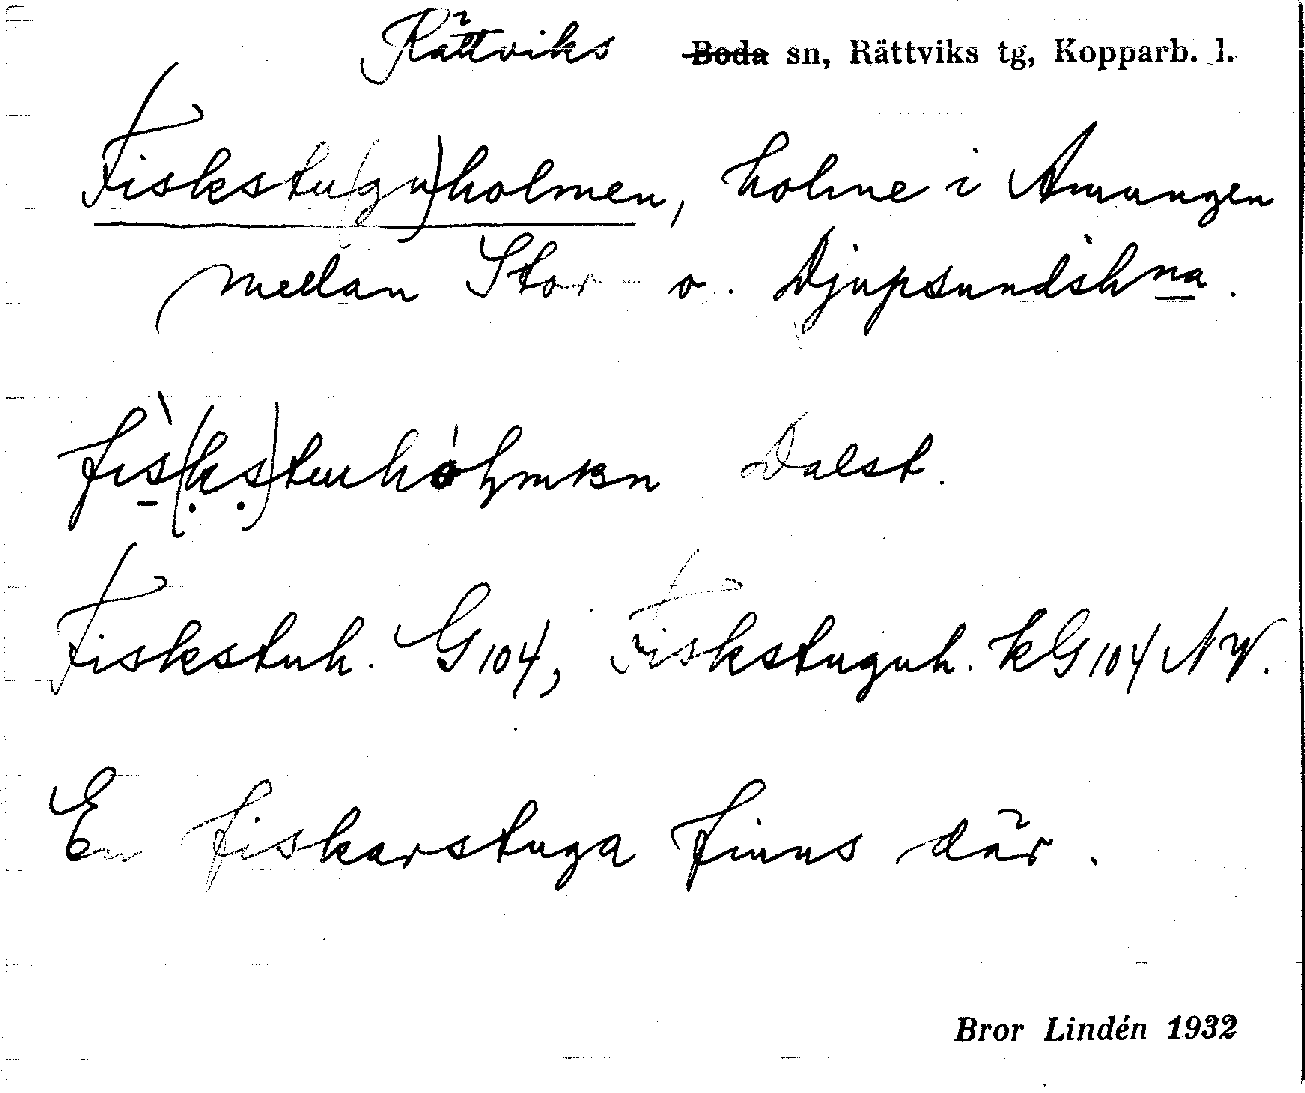 Rättviks Boda sn, Rättviks tg, Kopparb. l.
Fiskstu(gu)holmen, holme i Amungen
mellan Stor- o. Djupsundshna.
fis(ks)tuhòlmen Dalst.
Fiskstuh. G104, Fiskstuguh. kG104 NV.
En fiskarstuga finns där.
Bror Lindén 1932